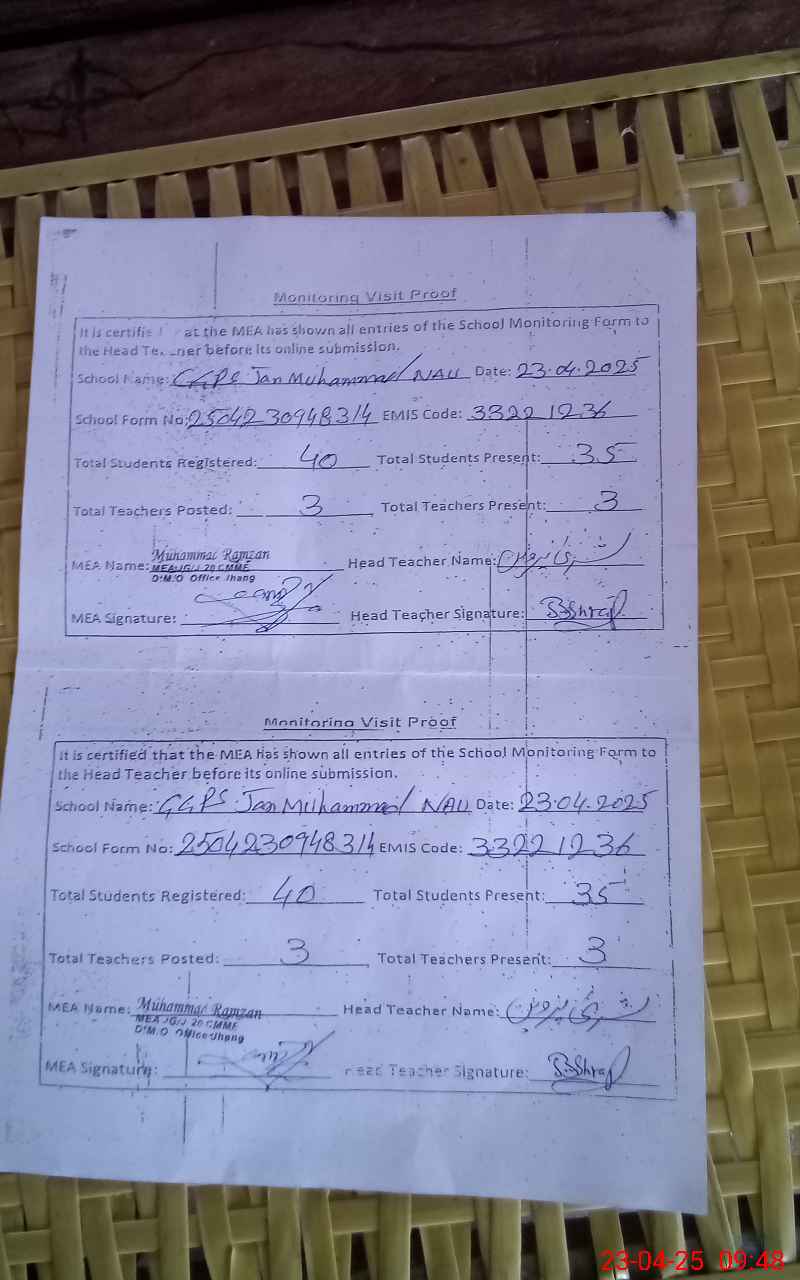 Monitoring Visit Proof
It is certifie at the MEA has shown all entries of the School Monitoring Form to
the Head Te ner before its online submission.
School Name: GGPS Jan Muhammad NAU Date: 23.04.2025
School Form No: 2504230948314 EMIS Code: 33221236
Total Students Registered: 40 Total Students Present: 35
Total Teachers Posted: 3 Total Teachers Present: 3
MEA Name: Muhammad Ramzan Head Teacher Name: بشریٰ پروین
MEA/G/J 20 CMMF
D.M.O Office Jhang
MEA Signature: Head Teacher Signature:
Monitoring Visit Proof
It is certified that the MEA has shown all entries of the School Monitoring Form to
the Head Teacher before its online submission.
School Name: GGPS Jan Muhammad NAU Date: 23.04.2025
School Form No: 2504230948314 EMIS Code: 33221236
Total Students Registered: 40 Total Students Present: 35
Total Teachers Posted: 3 Total Teachers Present: 3
MEA Name: Muhammad Ramzan Head Teacher Name: بشریٰ پروین
MEA/G/J 20 CMMF
D.M.O Office Jhang
MEA Signature: Head Teacher Signature:
23-04-25 09:48